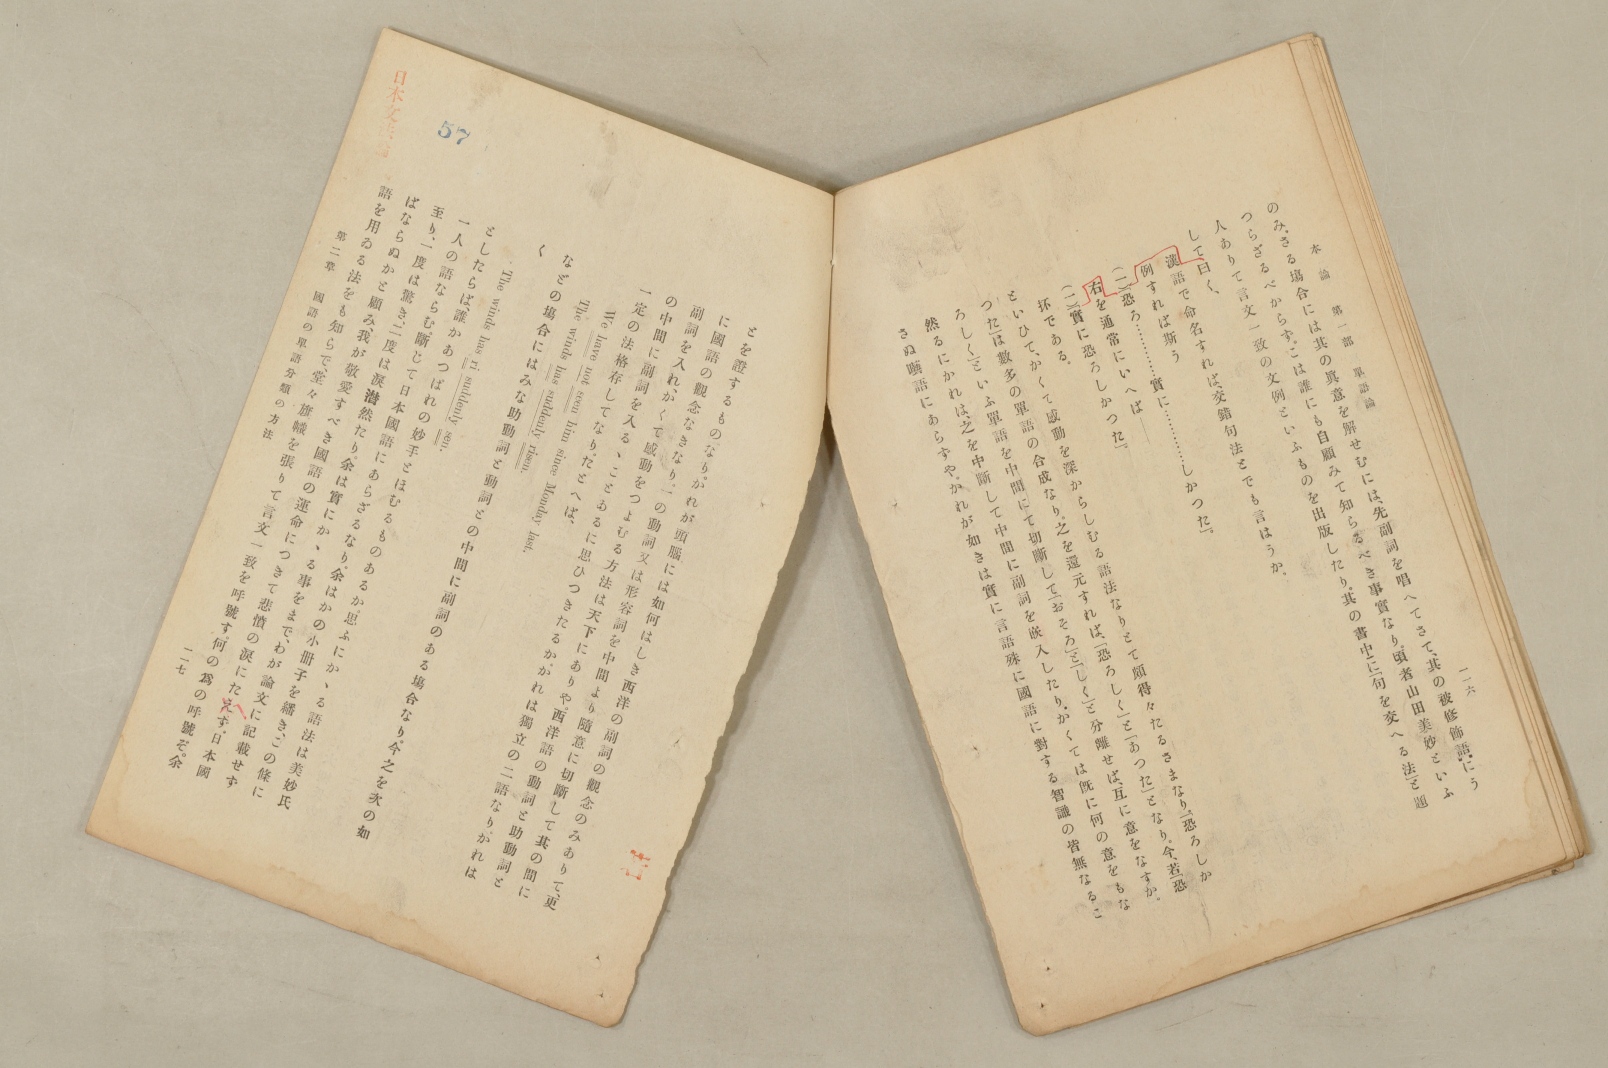 本論　第一部　單語論
一二六
のみ、さる塲合には其の眞意を解せむには、先副詞を唱へてさて、其の被修飾語にう
つらざるべからず。こは誰にも自顧みて知らるべき事實なり。頃者山田美妙といふ
人ありて言文一致の文例といふものを出版したり。其の書中に「句を交へる法」と題
して曰く、
漢語で命名すれば交錯句法とでも言はうか。
例すれば斯う
(一)恐ろ…………實に…………しかつた」
右を通常にいへば——
(二)實に恐ろしかつた」
抔である。
といひて、かくて感動を深からしむる語法なりとて頗得々たるさまなり。「恐ろしか
つた」は數多の單語の合成なり。之を還元すれば、「恐ろしく」と「あつた」となり。今、若「恐
ろしく」といふ單語を中間にて切斷して「おそろ」と「しく」と分離せば、互に意をなすか。
然るにかれは、之を中斷して中間に副詞を嵌入したり。かくては旣に何の意をもな
さぬ囈語にあらずや。かれが如きは實に言語殊に國語に對する智識の皆無なるこ
とを證するものなり。かれが頭腦には如何はしき西洋の副詞の觀念のみありて、更
に國語の觀念なきなり。一の動詞又は形容詞を中間より隨意に切斷して其の間に
副詞を入れ、かくて感動をつよむる方法は天下にありや。西洋語の動詞と助動詞と
の中間に副詞を入るゝことあるに思ひつきたるか。かれは獨立の二語なり。かれは
一定の法格存してなり。たとへば、
We have not seen him since Monday last.
The winds has suddenly risen.
などの塲合にはみな助動詞と動詞との中間に副詞のある塲合なり。今之を次の如
く
The winds has ri suddenly sen.
としたらば、誰かあつぱれの妙手とほむるものあるか。思ふにかゝる語法は美妙氏
一人の語ならむ。斷じて日本國語にあらざるなり。余はかの小册子を繙き、この條に
至り、一度は驚き二度は淚潸然たり。余は實にかゝる事をまで、わが論文に記載せず
ばならぬかと顧み、我が敬愛すべき國語の運命につきて悲憤の淚にたえず。日本國
語を用ゐる法をも知らで、堂々旗幟を張りて言文一致を呼號す。何の爲の呼號ぞ。余
第二章　國語の單語分類の方法
一二七
57
へ